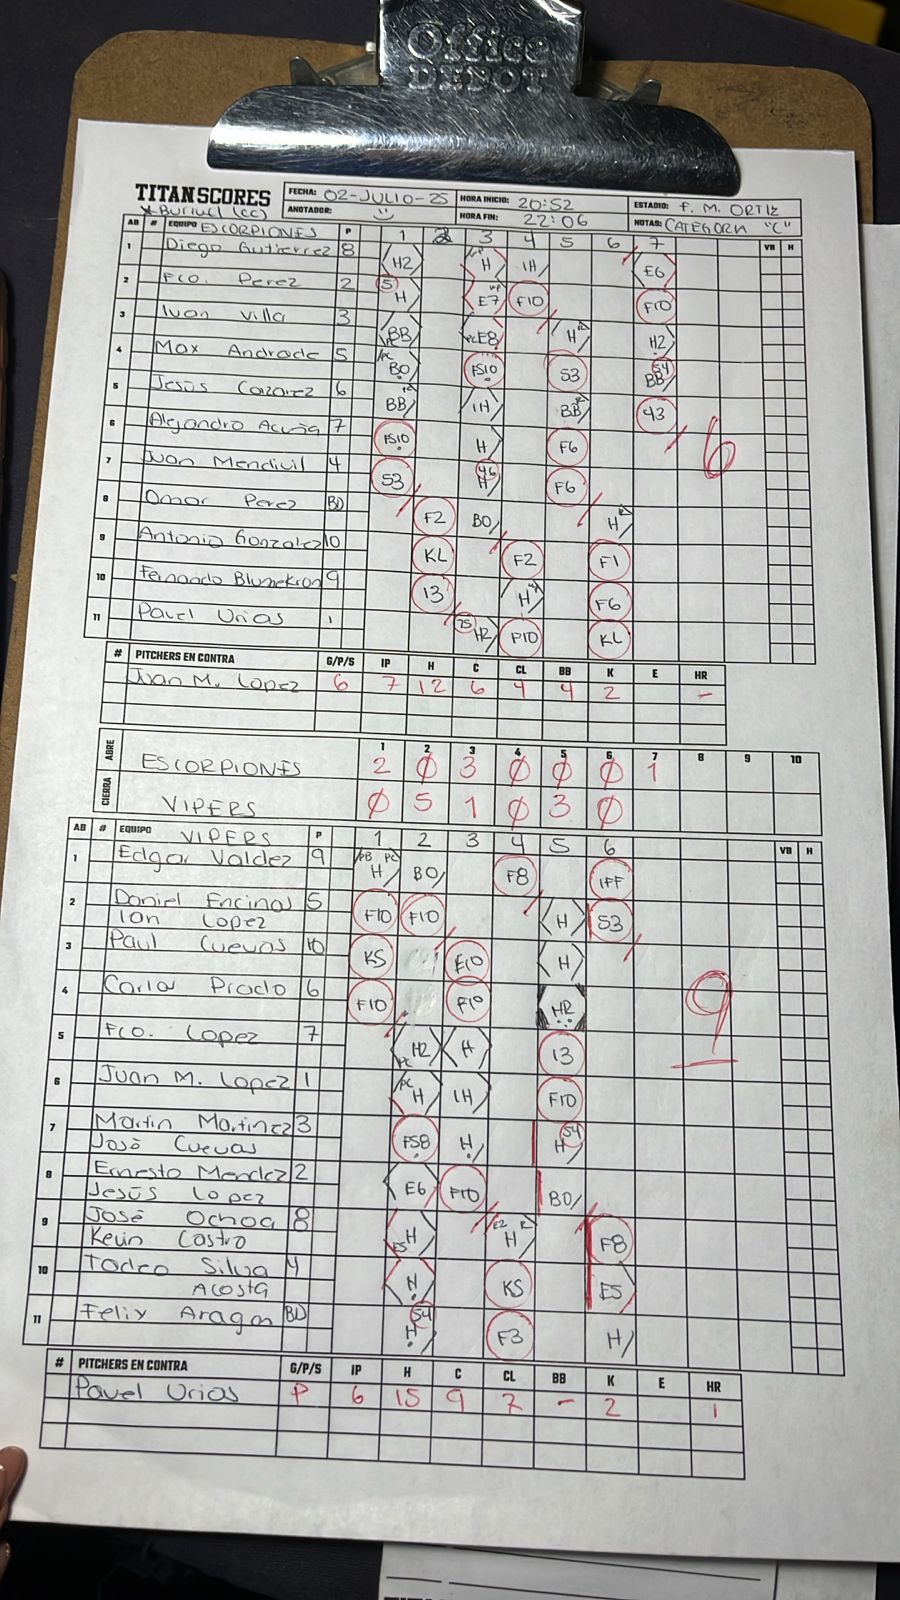 Office DEPOT
TITAN SCORES FECHA: 02-JULIO-25 HORA INICIO: 20:52 ESTADIO: F. M. ORTIZ
* Buriuel (cc) ANOTADOR: HORA FIN: 22:06 NOTAS: CATEGORIA "C"
AB # EQUIPO ESCORPIONES P 1 2 3 4 5 6 7 VB H
1 Diego Gutierrez 8 H2 H 1H E6
2 Fco. Perez 2 5 H E7 F10 F10
3 Ivan Villa 3 BB E8 H H2
4 Max Andrade 5 BO FS10 53 BB 54
5 Jesús Cazarez 6 BB 1H BB 43
6 Alejandro Acuña 7 FS10 H F6 6
7 Juan Mendivil 4 53 H 46 F6
8 Omar Perez BD F2 BO H
9 Antonio Gonzalez 10 KL F2 F1
10 Fernando Blumekron 9 13 H F6
11 Pavel Urias 1 H2 F10 KL
# PITCHERS EN CONTRA G/P/S IP H C CL BB K E HR
Juan M. Lopez 6 7 12 6 4 4 2 -
ABRE 1 2 3 4 5 6 7 8 9 10
ESCORPIONES 2 Ø 3 Ø Ø Ø 1
CIERRA VIPERS Ø 5 1 Ø 3 Ø
AB # EQUIPO VIPERS P 1 2 3 4 5 6 VB H
1 Edgar Valdez 9 PB PC H BO F8 IFF
2 Daniel Encinas 5 F10 F10 H 53
Ian Lopez
3 Paul Cuevas 10 KS F10 H
4 Carlos Prado 6 F10 F10 HR
5 Fco. Lopez 7 H2 H 13 9
6 Juan M. Lopez 1 PC H 1H F10
7 Martin Martinez 3 FS8 H H 54
José Cuevas
8 Ernesto Mendez 2 E6 F10 BO
Jesús Lopez
9 José Ochoa 8 H E2 H F8
Kevin Castro
10 Tadeo Silva 4 H KS E5
Acosta
11 Felix Aragon BD 54 H F3 H
# PITCHERS EN CONTRA G/P/S IP H C CL BB K E HR
Pavel Urias P 6 15 9 7 - 2 1